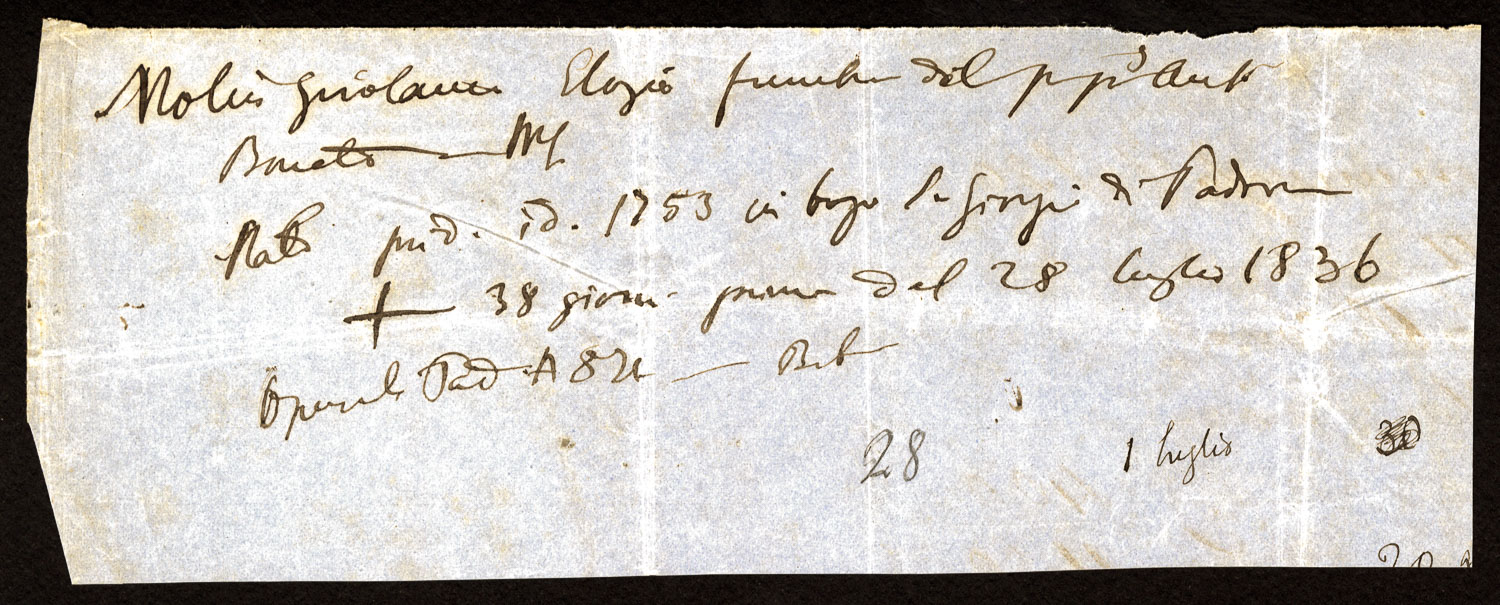 Molin Girolamo Elogio funebre del p. p. Ant.
Bonato — MS
Nato prid. id. 1753 in borgo S. Giorgio di Padova
+ 38 giorni prima del 28 luglio 1836
Opuscoli Pad A 821 — Bib
28 1 luglio 30